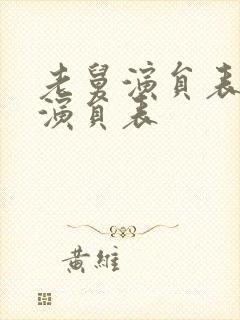 老舅演員表
演員表
黃維